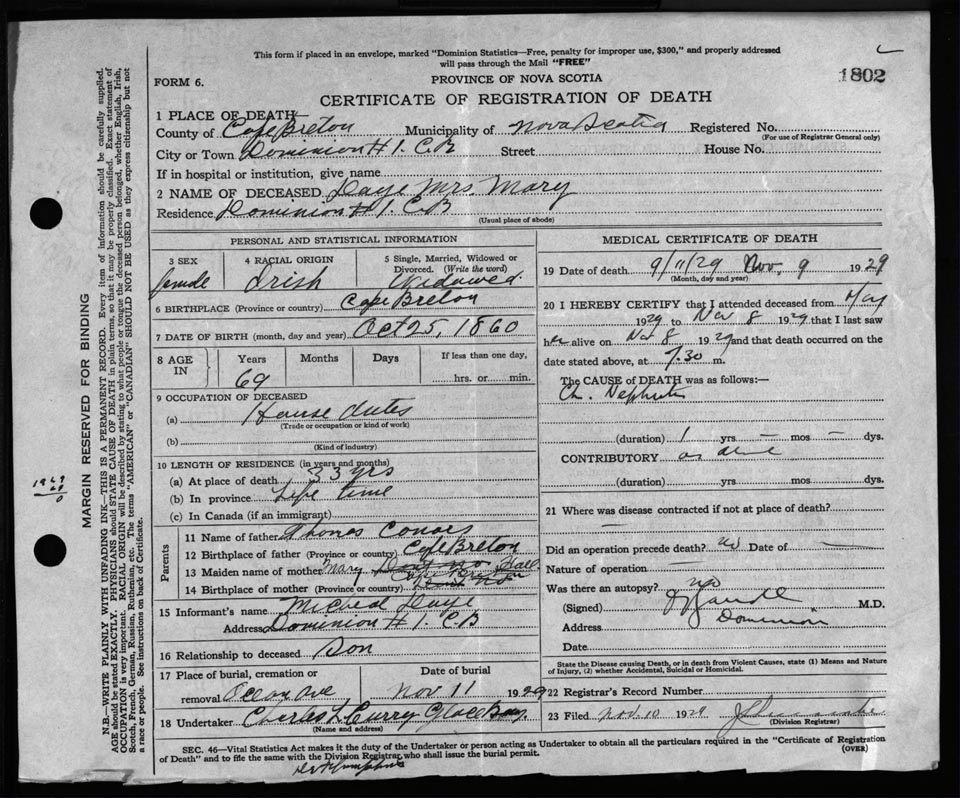 This form if placed in an envelope, marked "Dominion Statistics—Free, penalty for improper use, $300," and properly addressed
will pass through the Mail "FREE"
FORM 6.
PROVINCE OF NOVA SCOTIA
1802
CERTIFICATE OF REGISTRATION OF DEATH
1 PLACE OF DEATH—
County of Cape Breton Municipality of Nova Scotia Registered No.
(For use of Registrar General only)
City or Town Dominion # 1. C.B Street House No.
If in hospital or institution, give name
2 NAME OF DECEASED Mrs Mary
Residence Dominion # 1. C B
(Usual place of abode)
PERSONAL AND STATISTICAL INFORMATION
3 SEX
4 RACIAL ORIGIN
5 Single, Married, Widowed or
Divorced. (Write the word)
female Irish Widowed
6 BIRTHPLACE (Province or country) Cape Breton
7 DATE OF BIRTH (month, day and year) Oct 25, 1860
8 AGE
IN
Years Months Days If less than one day,
69 hrs. or min.
9 OCCUPATION OF DECEASED
(a) House duties
(Trade or occupation or kind of work)
(b)
(Kind of industry)
10 LENGTH OF RESIDENCE (in years and months)
(a) At place of death 33 yrs
(b) In province Life time
(c) In Canada (if an immigrant)
Parents
11 Name of father Thomas
12 Birthplace of father (Province or country) Cape Breton
13 Maiden name of mother Mary
14 Birthplace of mother (Province or country) Cape Breton
15 Informant's name Micheal
Address Dominion # 1. C B
16 Relationship to deceased Son
17 Place of burial, cremation or
removal Ocean Ave
Date of burial
Nov 11 1929
18 Undertaker Charles L Curry Glace Bay
(Name and address)
MEDICAL CERTIFICATE OF DEATH
19 Date of death 9/11/29 Nov. 9 1929
(Month, day and year)
20 I HEREBY CERTIFY that I attended deceased from May
1929 to Nov 8 1929 that I last saw
her alive on Nov 8 1929 and that death occurred on the
date stated above, at 7.30 m.
The CAUSE OF DEATH was as follows:—
Ch. Nephritis
(duration) 1 yrs — mos — dys.
CONTRIBUTORY as above
(duration) yrs. mos. dys.
21 Where was disease contracted if not at place of death?
—
Did an operation precede death? no Date of —
Nature of operation —
Was there an autopsy? no
(Signed) M.D.
Address Dominion
Date
State the Disease causing Death, or in death from Violent Causes, state (1) Means and Nature
of Injury, (2) whether Accidental, Suicidal or Homicidal.
22 Registrar's Record Number
23 Filed Nov. 10 1929
(Division Registrar)
SEC. 46—Vital Statistics Act makes it the duty of the Undertaker or person acting as Undertaker to obtain all the particulars required in the "Certificate of Registration
of Death" and to file the same with the Division Registrar, who shall issue the burial permit.
(OVER)
MARGIN RESERVED FOR BINDING
N.B.—WRITE PLAINLY WITH UNFADING INK—THIS IS A PERMANENT RECORD. Every item of information should be carefully supplied.
AGE should be stated EXACTLY. PHYSICIANS should STATE CAUSE OF DEATH in plain terms, so that it may be properly classified. Exact statement of
OCCUPATION is very important. RACIAL ORIGIN will be described by stating to what people or tongue the deceased person belonged, whether English, Irish,
Scotch, French, German, Russian, Ruthenian, etc. The terms "AMERICAN" or "CANADIAN" SHOULD NOT BE USED as they express citizenship but not
a race or people. See instructions on back of Certificate.